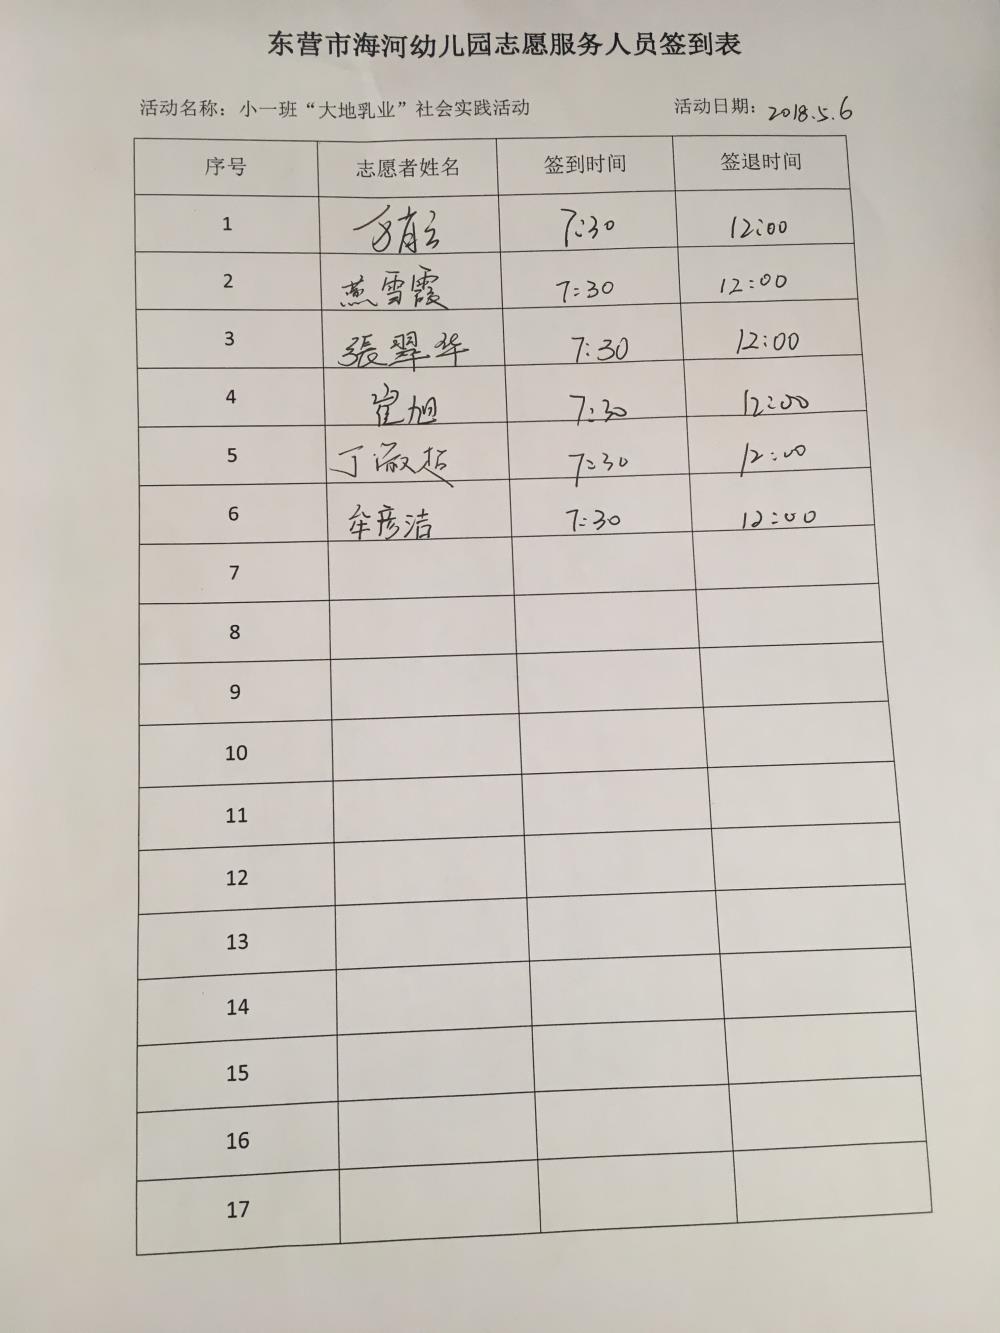 东营市海河幼儿园志愿服务人员签到表
活动名称：小一班“大地乳业”社会实践活动 活动日期：2018.5.6
序号 志愿者姓名 签到时间 签退时间
1 7:30 12:00
2 燕雪霞 7:30 12:00
3 張翠华 7:30 12:00
4 崔旭 7:30 12:00
5 丁淑超 7:30 12:00
6 牟彦洁 7:30 12:00
7
8
9
10
11
12
13
14
15
16
17